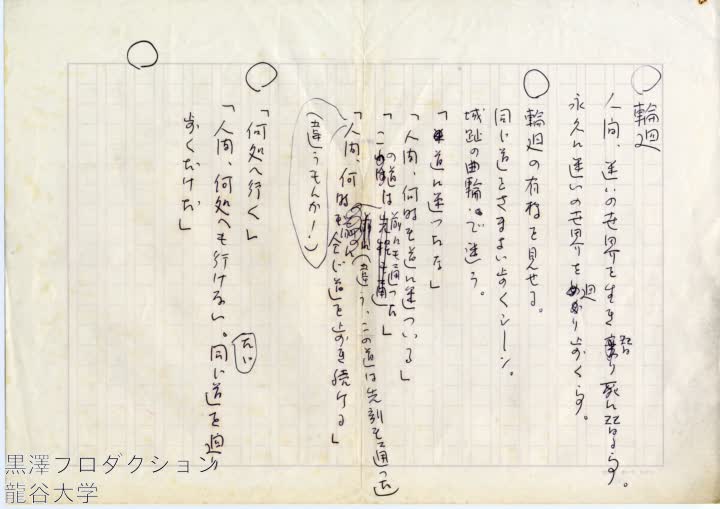 輪廻
人間、迷いの世界を生き変り死に変る。
永久に迷いの世界を廻り歩くらす。
輪廻の有様を見せる。
同じ道をさまよい歩くシーン。
城趾の曲輪で迷う。
「道に迷ったな」
「人間、何時も道に迷っている」
「この道は前にも通った」
(違う、この道は先刻も通った)
「人間、何時も同じ道を歩き続ける」
(違うもんか!)
「何処へ行く」
「人間、何処へも行けない。同じ道を廻り
歩くだけだ」
黒澤プロダクション
龍谷大学